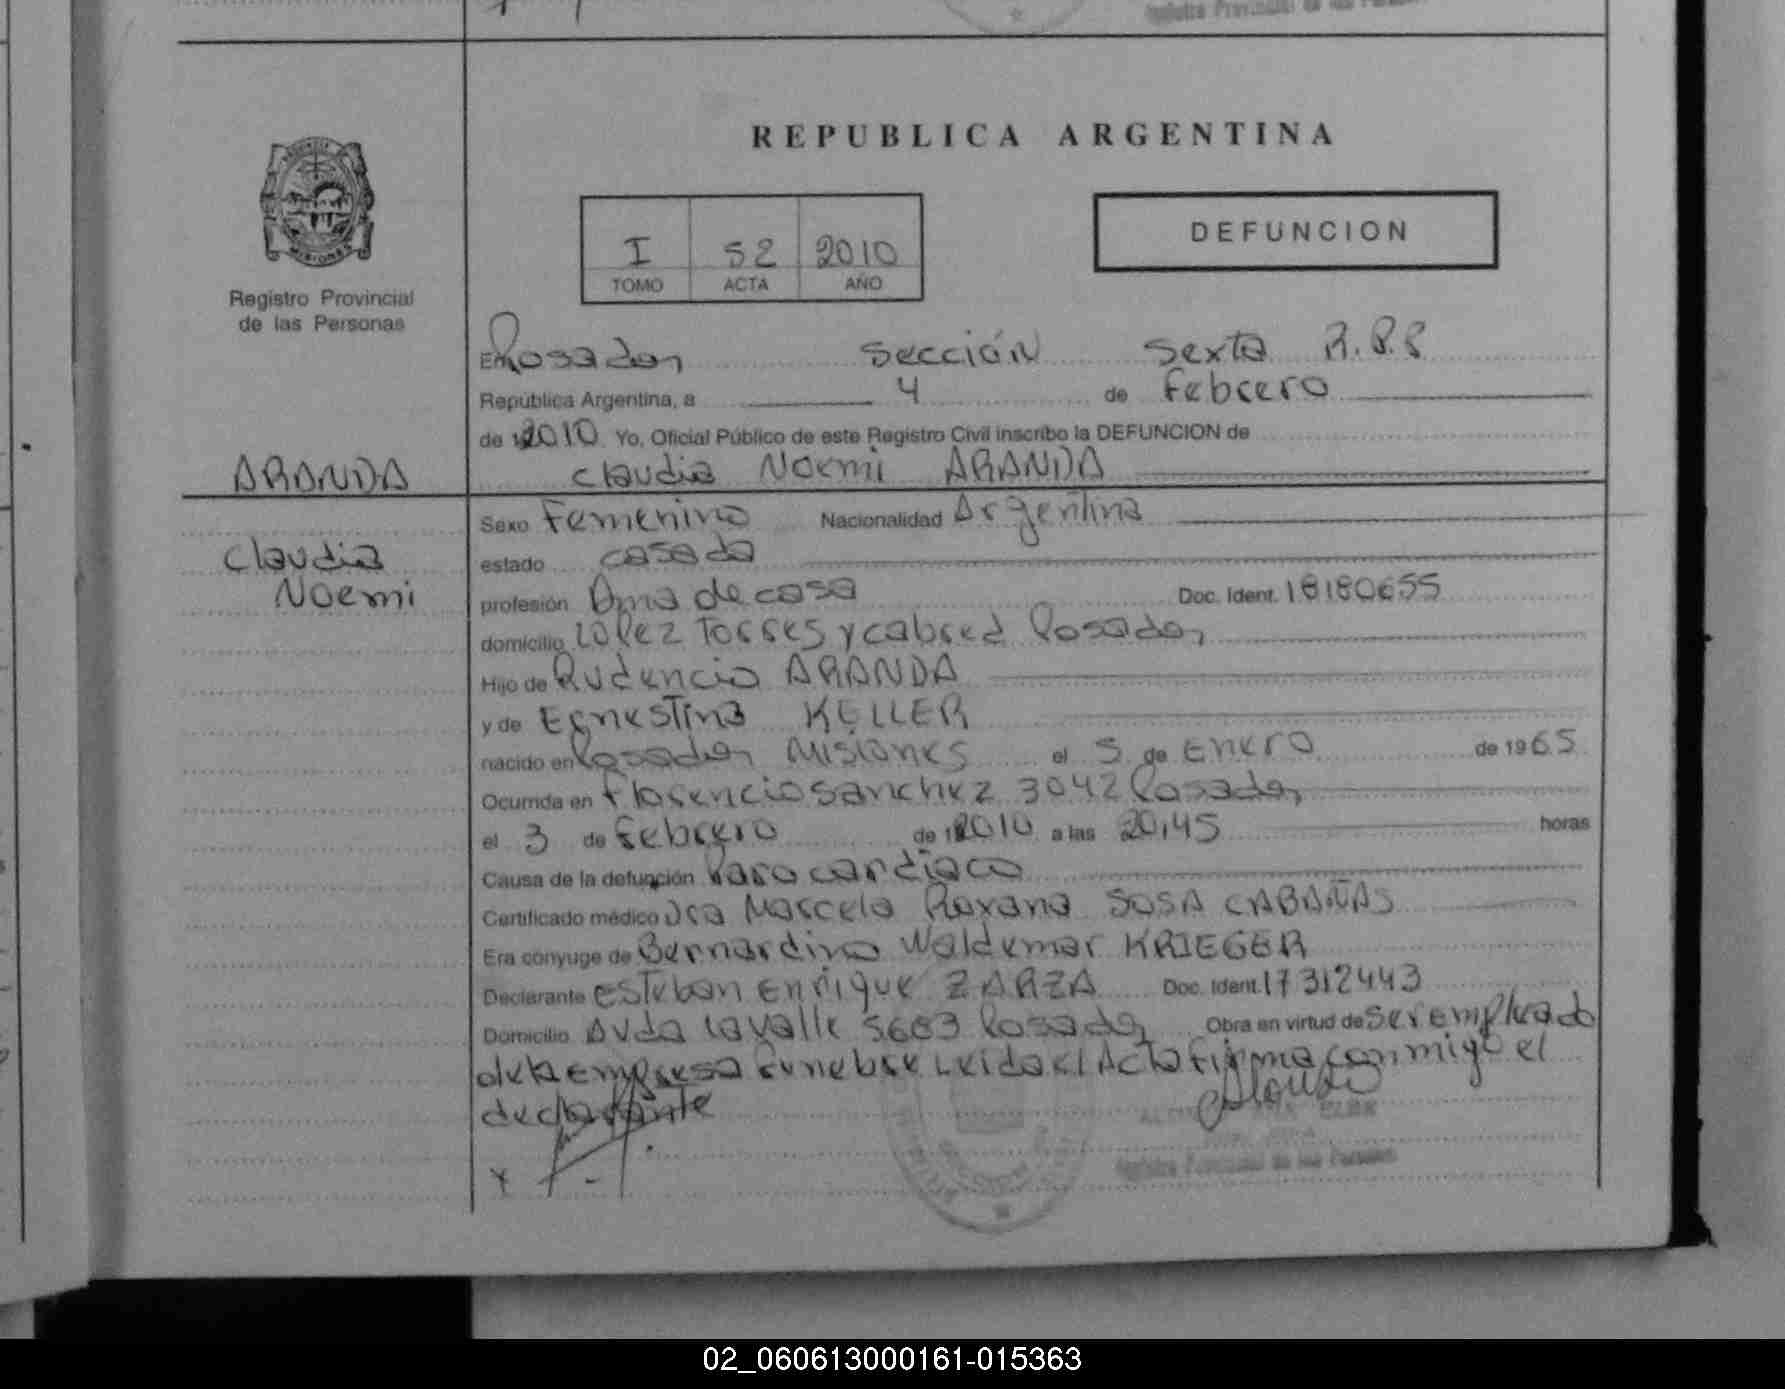 REPUBLICA ARGENTINA
I 52 2010
TOMO ACTA AÑO
DEFUNCION
MISIONES
Registro Provincial
de las Personas
En Posadas, Sección Sexta R.P.P
República Argentina, a 4 de Febrero
de 2010 Yo, Oficial Público de este Registro Civil inscribo la DEFUNCION de
Claudia Noemi ARANDA
ARANDA
Claudia
Noemi
Sexo Femenino Nacionalidad Argentina
estado casada
profesión Ama de casa Doc. Ident. 18180655
domicilio López Torres y Cabred Posadas,
Hijo de Prudencio ARANDA
y de Ernestina KELLER
nacido en Posadas, Misiones el 5 de Enero de 1965
Ocurrida en Florencio Sanchez 3042 Posadas,
el 3 de Febrero de 2010 a las 20,45 horas
Causa de la defunción Paro cardíaco
Certificado médico Dra Marcela Roxana SOSA CABAÑAS
Era cónyuge de Bernardino Waldemar KRIEGER
Declarante Esteban Enrique ZARZA Doc. Ident. 17312443
Domicilio Avda Lavalle 5683 Posadas, Obra en virtud de ser empleado
de la empresa funebre Leida el Acta firma conmigo el
declarante
Registro Provincial de las Personas
02_060613000161-015363